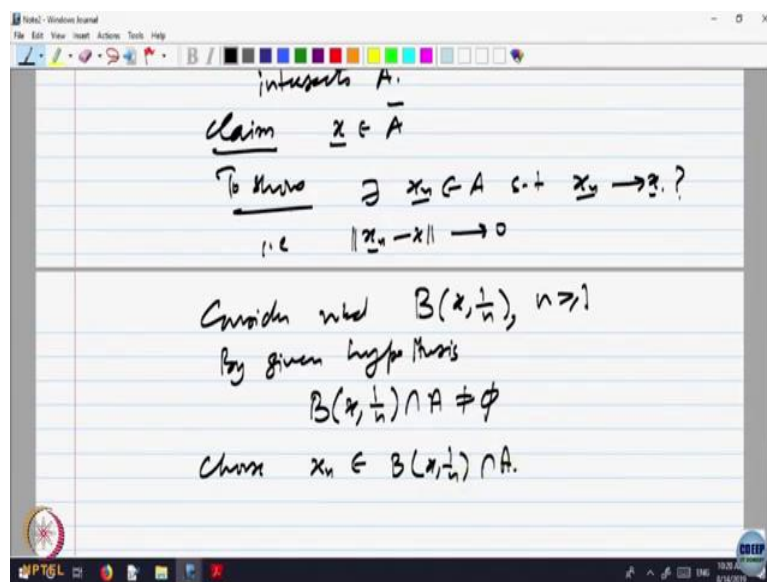 Note2 - Windows Journal
File Edit View Insert Actions Tools Help
B I
intersects A.
Claim x ∈ A̅
To show ∃ xₙ ∈ A s.t xₙ → x. ?
i.e ‖xₙ - x‖ → 0
Consider nbd B(x, 1/n), n ≥ 1
By given hypothesis
B(x, 1/n) ∩ A ≠ ϕ
Choose xₙ ∈ B(x, 1/n) ∩ A.
NPTEL
CDEEP
ENG
8/14/2019